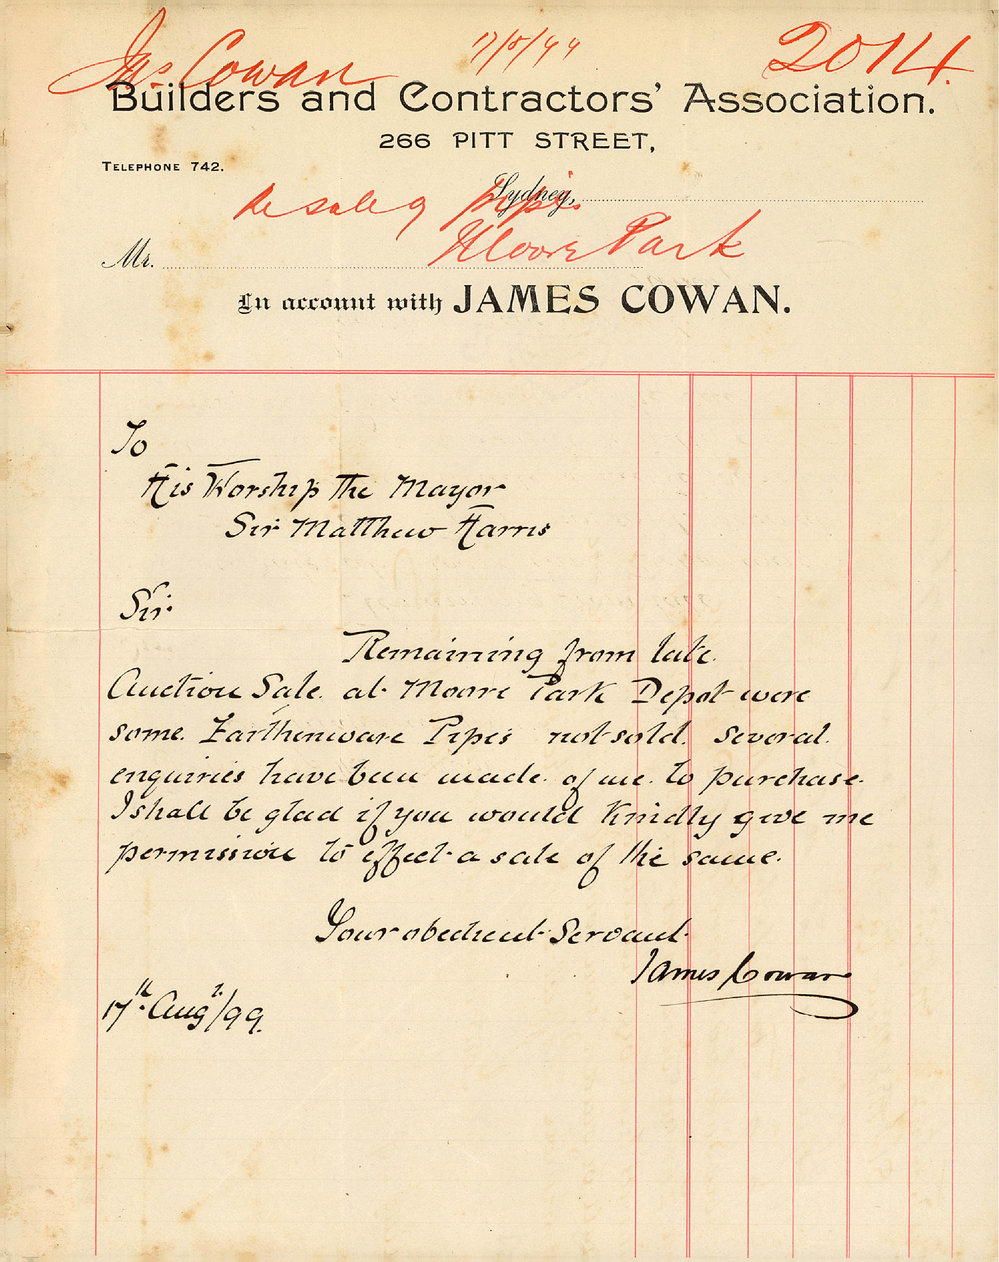 Jas Cowan 17/8/99 2014
Builders and Contractors' Association.
266 PITT STREET,
TELEPHONE 742.
Sydney,
re sale of pipes
Moore Park
Mr.
In account with JAMES COWAN.
To
His Worship The Mayor
Sir Matthew Harris
Sir
Remaining from late
Auction Sale at Moore Park Depot were
some Earthenware Pipes not sold. Several
enquiries have been made of me to purchase.
I shall be glad if you would kindly give me
permission to effect a sale of the same.
Your obedient Servant
James Cowan
17th Augt/99.